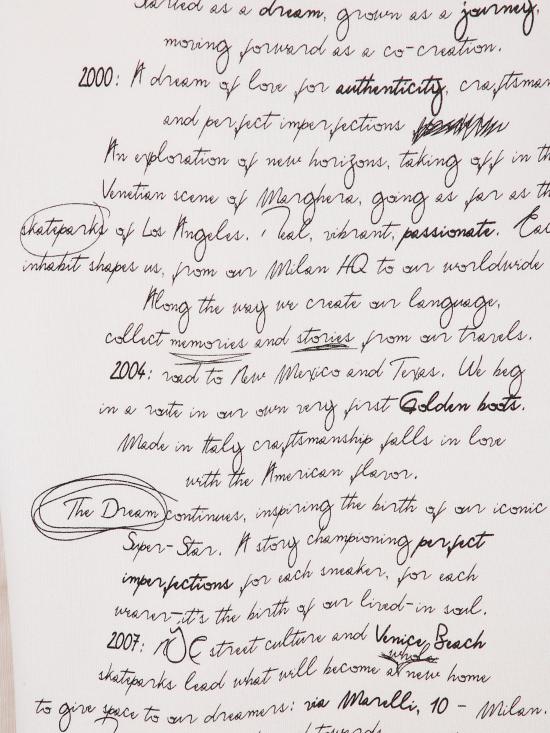 Started as a dream, grown as a journey,
moving forward as a co-creation.
2000: A dream of love for authenticity, craftsman
and perfect imperfections
An exploration of new horizons, taking off in th
Venetian scene of Marghera, going as far as th
skateparks of Los Angeles. Real, vibrant, passionate. Eac
inhabit shapes us, from our Milan HQ to our worldwide
Along the way we create our language,
collect memories and stories from our travels.
2004: road to New Mexico and Texas. We beg
in a route in our own very first Golden boots.
Made in Italy craftsmanship falls in love
with the American flavor.
The Dream continues, inspiring the birth of our iconic
Super-Star. A story championing perfect
imperfections for each sneaker, for each
wearer-it's the birth of our lived-in soul.
2007: NYC street culture and Venice Beach
whole
skateparks lead what will become a new home
to give space to our dreamers: via Marelli, 10 - Milan.
towards